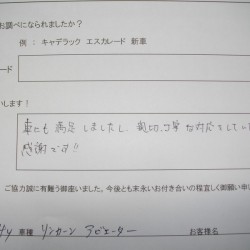 お調べになられましたか？
例 ： キャデラック エスカレード 新車
ード
いします！
車にも 満足しましたし、親切、丁寧な対応をしてい
感謝です!!
ご協力誠に有難う御座いました。今後とも末永いお付き合いの程宜しく御願い申
車種 リンカーン アビエーター お客様名